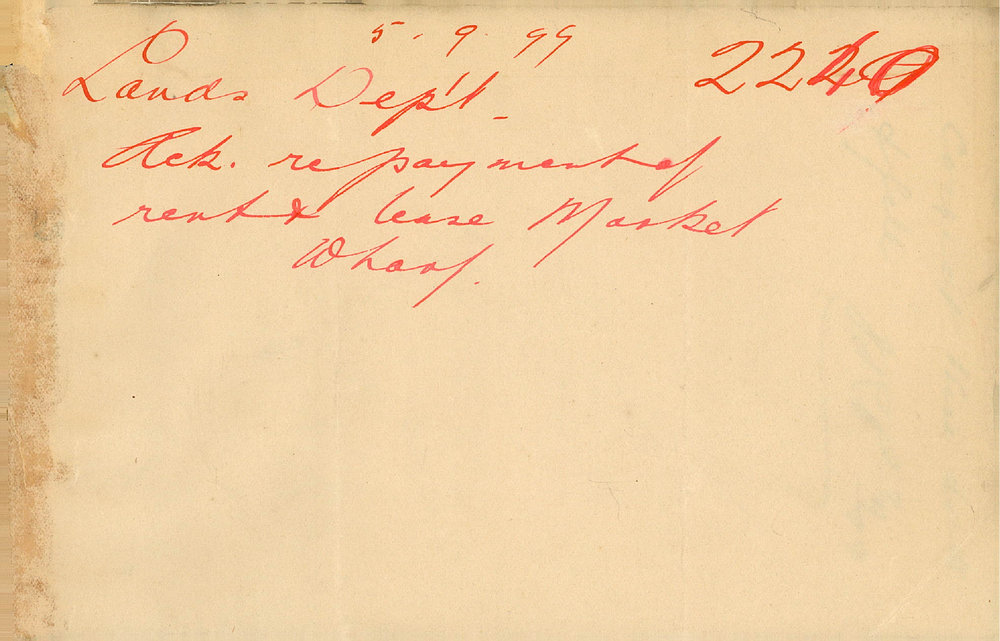 5. 9. 99
Lands Dep't 2240
Ack. re payment of
rent & lease Market
Wharf.